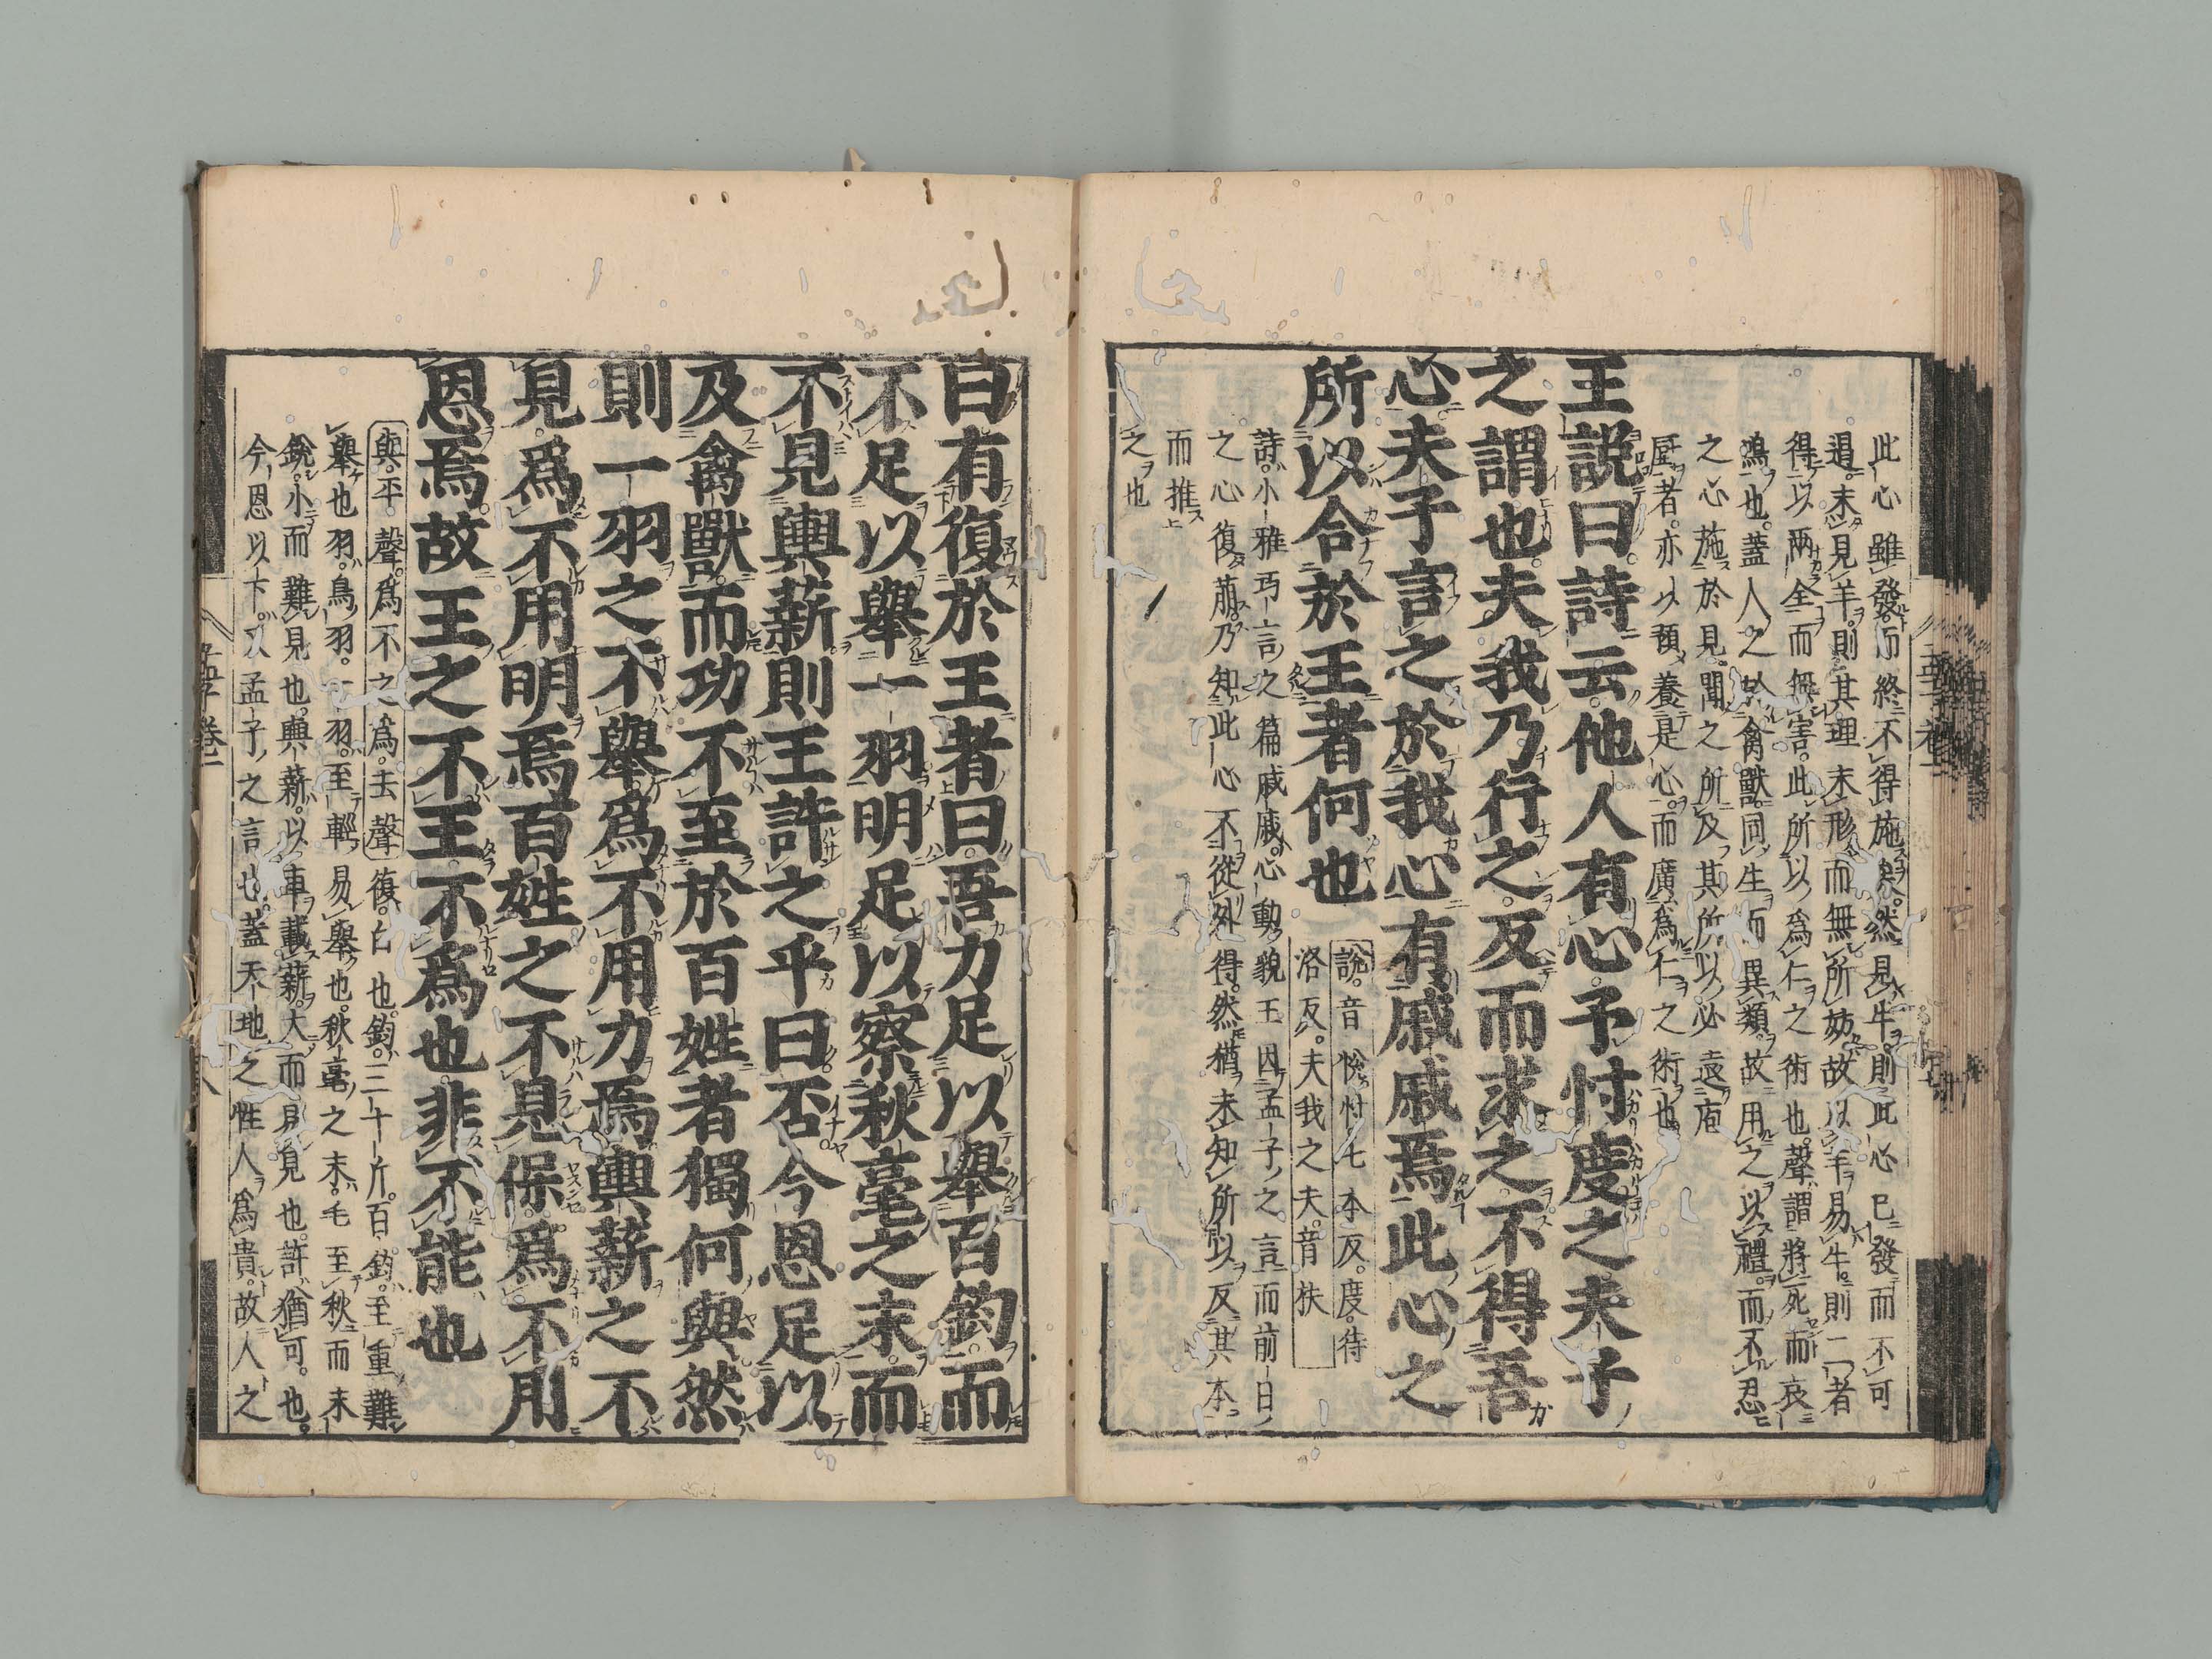 此心雖發而終不得施矣然見牛則此心已發而不可
遏未見羊則其理未形而無所妨故以羊易牛則二者
得以兩全而無害此所以爲仁之術也聲謂將死而哀
鳴也蓋人之於禽獸同生而異類故用之以禮而不忍
之心施於見聞之所及其所以必遠庖
厨者亦以預養是心而廣爲仁之術也
王説曰詩云他人有心予忖度之夫子
之謂也夫我乃行之反而求之不得吾
心夫子言之於我心有戚戚焉此心之
所以合於王者何也
說音悅忖七本反度待
洛反夫我之夫音扶
詩小雅巧言之篇戚戚心動貌王因孟子之言而前日
之心復萠乃知此心不從外得然猶未知所以反其本
而推
之也
曰有復於王者曰吾力足以舉百鈞而
不足以舉一羽明足以察秋毫之末而
不見輿薪則王許之乎曰否今恩足以
及禽獸而功不至於百姓者獨何與然
則一羽之不舉爲不用力焉輿薪之不
見爲不用明焉百姓之不見保爲不用
恩焉故王之不王不爲也非不能也
與平聲爲不之爲去聲復白也鈞三十斤百鈞至重難
舉也羽鳥羽一羽至輕易舉也秋毫之末毛至秋而末
銳小而難見也輿薪以車載薪大而易見也許猶可也
今恩以下又孟子之言也蓋天地之性人爲貴故人之
孟子卷一
八